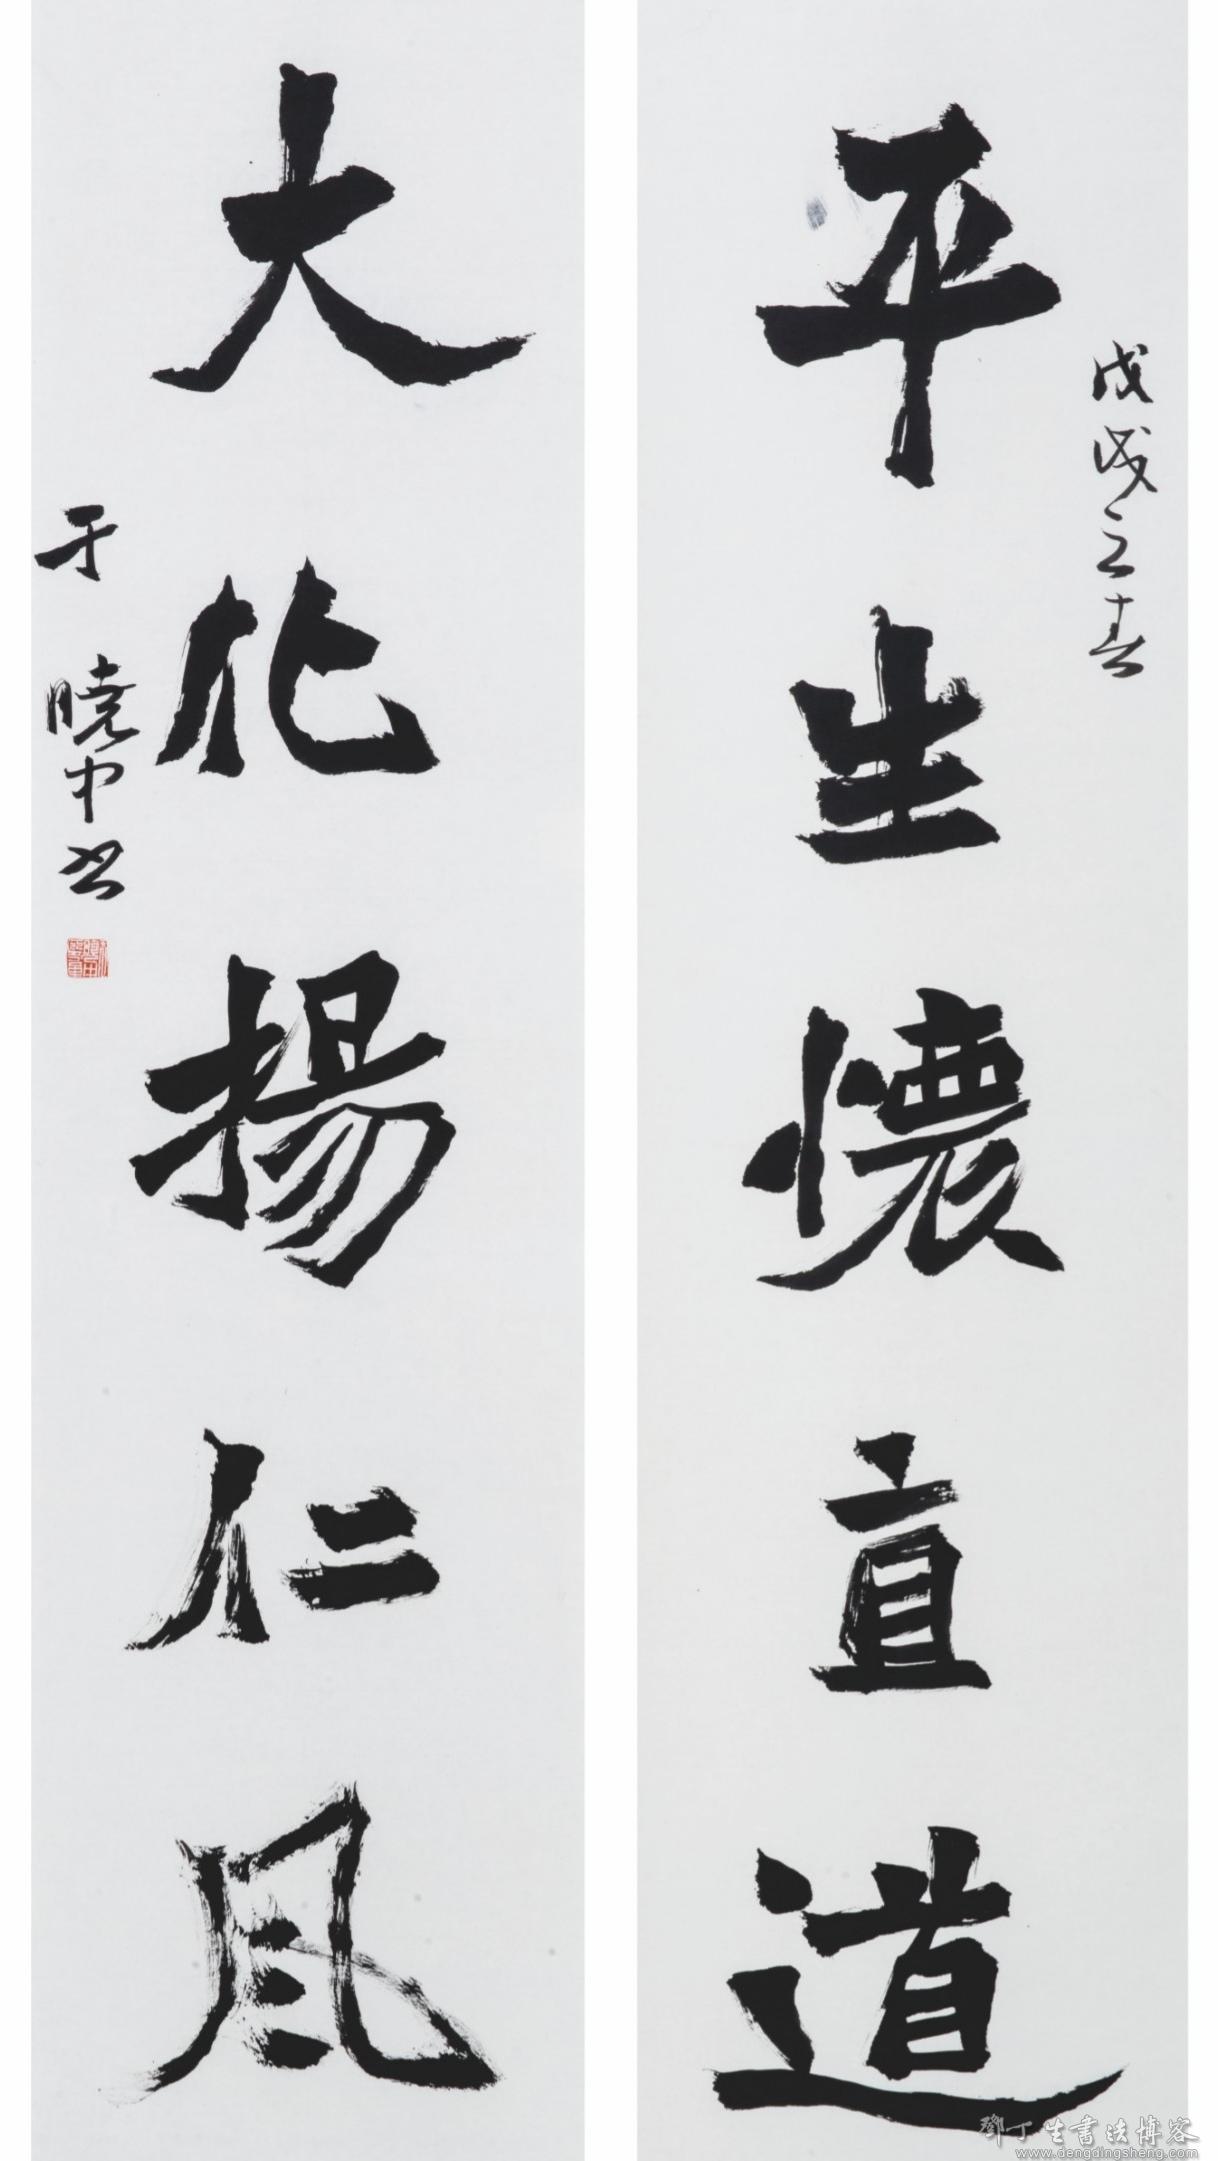 平生懷直道
大化揚仁風
戊戌之春
于曉中书
鄧丁生書法博客
www.dengdingsheng.com